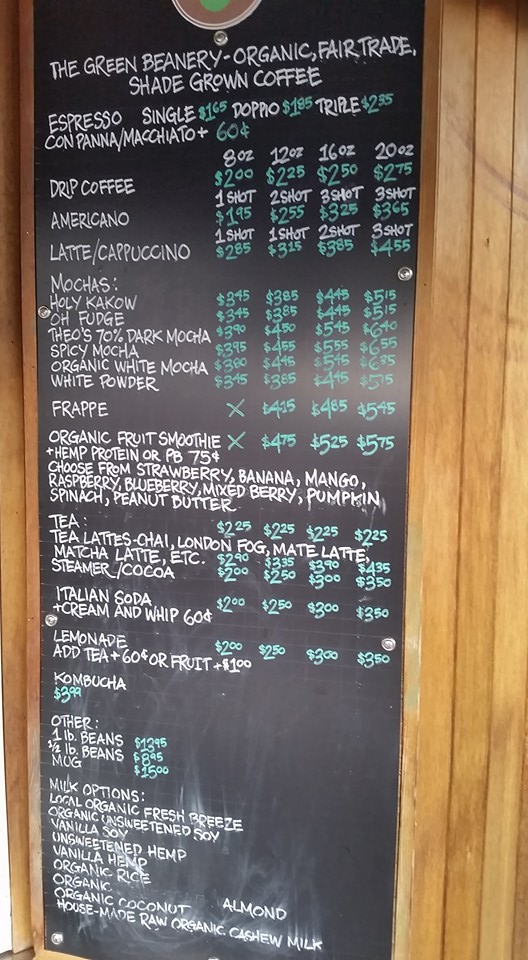 THE GREEN BEANERY - ORGANIC, FAIR TRADE,
SHADE GROWN COFFEE
ESPRESSO SINGLE $1.65 DOPPIO $1.85 TRIPLE $2.35
CON PANNA/MACCHIATO + 60¢
8oz 12oz 16oz 20oz
DRIP COFFEE $2.00 $2.25 $2.50 $2.75
1 SHOT 2 SHOT 3 SHOT 3 SHOT
AMERICANO $1.95 $2.55 $3.25 $3.65
1 SHOT 1 SHOT 2 SHOT 3 SHOT
LATTE/CAPPUCCINO $2.85 $3.15 $3.85 $4.55
MOCHAS:
HOLY KAKOW $3.45 $3.85 $4.45 $5.15
OH FUDGE $3.45 $3.85 $4.45 $5.15
THEO'S 70% DARK MOCHA $3.90 $4.50 $5.45 $6.40
SPICY MOCHA $3.95 $4.55 $5.55 $6.55
ORGANIC WHITE MOCHA $3.80 $4.45 $5.45 $6.35
WHITE POWDER $3.45 $3.85 $4.45 $5.15
FRAPPE X $4.15 $4.85 $5.45
ORGANIC FRUIT SMOOTHIE X $4.75 $5.25 $5.75
+HEMP PROTEIN OR PB 75¢
CHOOSE FROM STRAWBERRY, BANANA, MANGO,
RASPBERRY, BLUEBERRY, MIXED BERRY, PUMPKIN
SPINACH, PEANUT BUTTER
TEA: $2.25 $2.25 $2.25 $2.25
TEA LATTES-CHAI, LONDON FOG, MATE LATTE,
MATCHA LATTE, ETC. $2.90 $3.35 $3.90 $4.35
STEAMER/COCOA $2.00 $2.50 $3.00 $3.50
ITALIAN SODA $2.00 $2.50 $3.00 $3.50
+CREAM AND WHIP 60¢
LEMONADE $2.00 $2.50 $3.00 $3.50
ADD TEA+60¢ OR FRUIT +$1.00
KOMBUCHA
$3.99
OTHER:
1 lb. BEANS $13.95
½ lb. BEANS $8.95
MUG $15.00
MILK OPTIONS:
LOCAL ORGANIC FRESH BREEZE
ORGANIC UNSWEETENED SOY
VANILLA SOY
UNSWEETENED HEMP
VANILLA HEMP
ORGANIC RICE
ORGANIC
ORGANIC COCONUT ALMOND
HOUSE-MADE RAW ORGANIC CASHEW MILK